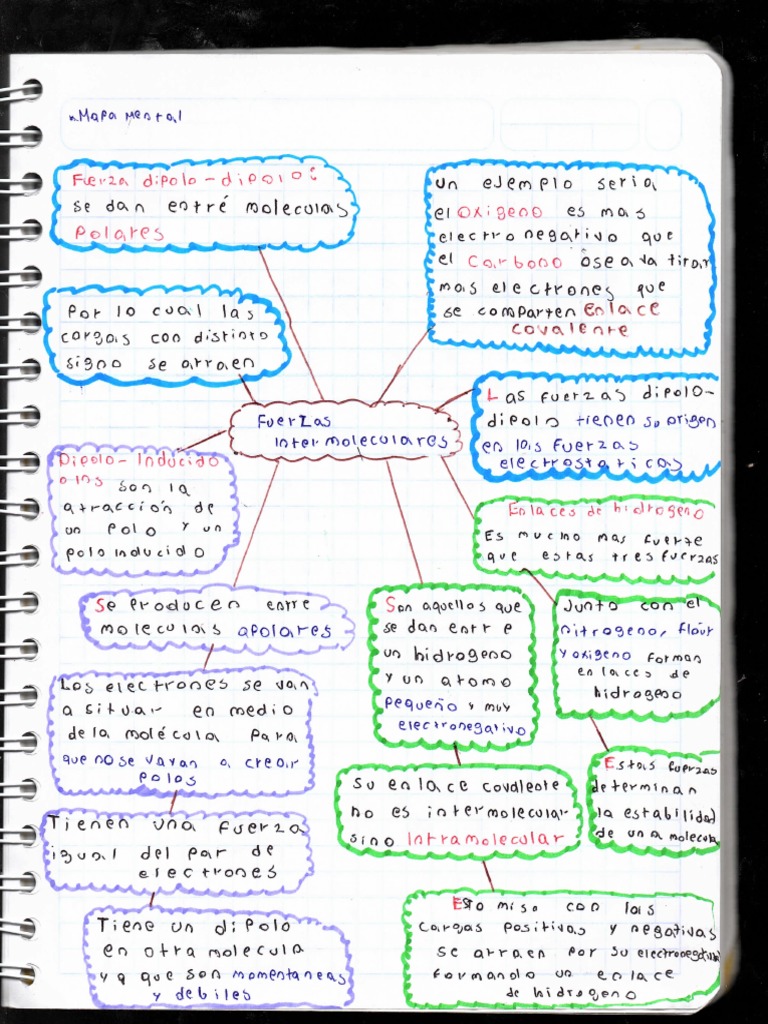 Mapa mental
Fuerza dipolo-dipolo:
se dan entré moleculas
Polares
Por lo cual las
cargas con distinto
signo se atraen
un ejemplo seria
el oxigeno es mas
electronegativo que
el carbono osea va tirar
mas electrones que
se comparten enlace
covalente
Fuerzas
intermoleculares
Las fuerzas dipolo-
dipolo tienen su origen
en las fuerzas
electrostaticas
Dipolo-Inducido
son la
atracción de
un polo y un
polo inducido
Enlaces de hidrogeno
Es mucho mas fuerte
que estas tres fuerzas
Se producen entre
moleculas apolares
Son aquellos que
se dan entre
un hidrogeno
y un atomo
pequeño y muy
electronegativo
Junto con el
nitrogeno, flour
y oxigeno forman
enlaces de
hidrogeno
Los electrones se van
a situar en medio
de la molécula para
que no se vayan a crear
polos
Estas fuerzas
determinan
la estabilidad
de una molecula
Su enlace covalente
no es intermolecular
sino Intramolecular
Tienen una fuerza
igual del par de
electrones
Esto miso con las
cargas positivas y negativas
se atraen por su electronegativa
formando un enlace
de hidrogeno
Tiene un dipolo
en otra molecula
ya que son momentaneas
y debiles